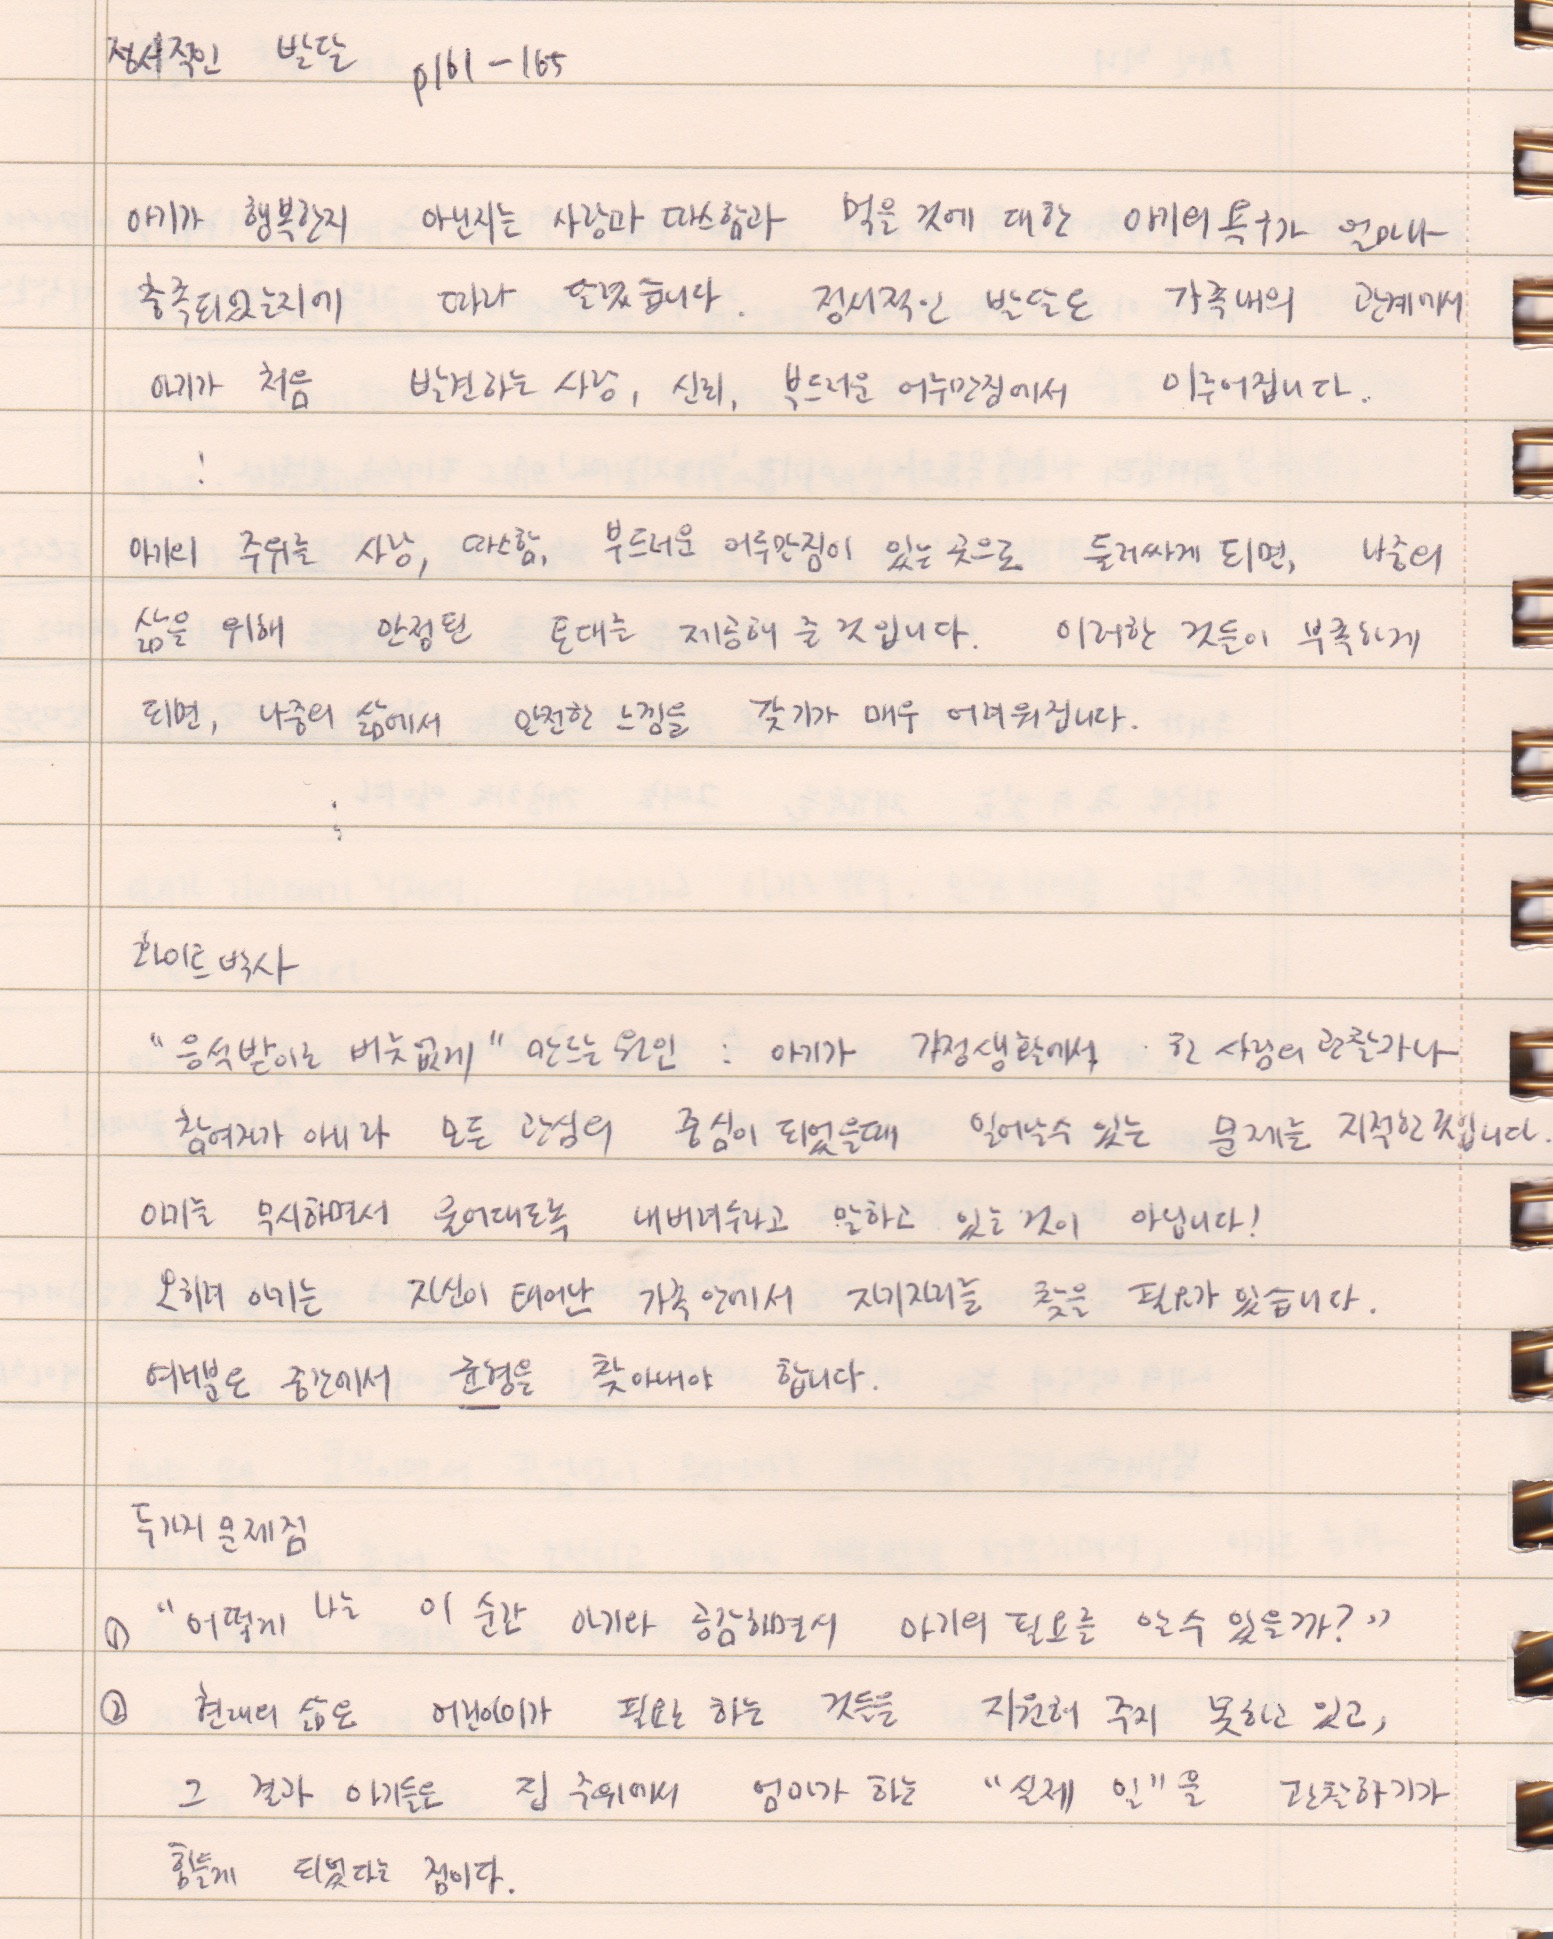 정서적인 발달 p161-165
아기가 행복한지 아닌지는 사랑과 따스함과 먹을 것에 대한 아기의 욕구가 얼마나
충족되었는지에 따라 달렸습니다. 정서적인 발달은 가족내의 관계에서
아기가 처음 발견하는 사랑, 신뢰, 부드러운 어루만짐에서 이루어집니다.
:
아기의 주위를 사랑, 따스함, 부드러운 어루만짐이 있는 곳으로 둘러싸게 되면, 나중의
삶을 위해 안정된 토대를 제공해 준 것입니다. 이러한 것들이 부족하게
되면, 나중의 삶에서 안전한 느낌을 갖기가 매우 어려워집니다.
:
화이트 박사
"응석받이로 버릇없게" 만드는 원인 : 아기가 가정생활에서 한 사람의 관찰자나
참여자가 아니라 모든 관심의 중심이 되었을때 일어날수 있는 문제를 지적한 것입니다.
아기를 무시하면서 울어대도록 내버려두라고 말하고 있는 것이 아닙니다!
오히려 아기는 자신이 태어난 가족 안에서 자기자리를 찾을 필요가 있습니다.
여러분은 중간에서 균형을 찾아내야 합니다.
두가지 문제점
① "어떻게 나는 이 순간 아기와 공감하면서 아기의 필요를 알 수 있을까?"
② 현대의 삶은 어린아이가 필요로 하는 것들을 지원해 주지 못하고 있고,
그 결과 아기들은 집 주위에서 엄마가 하는 "실제 일"을 관찰하기가
힘들게 되었다는 점이다.